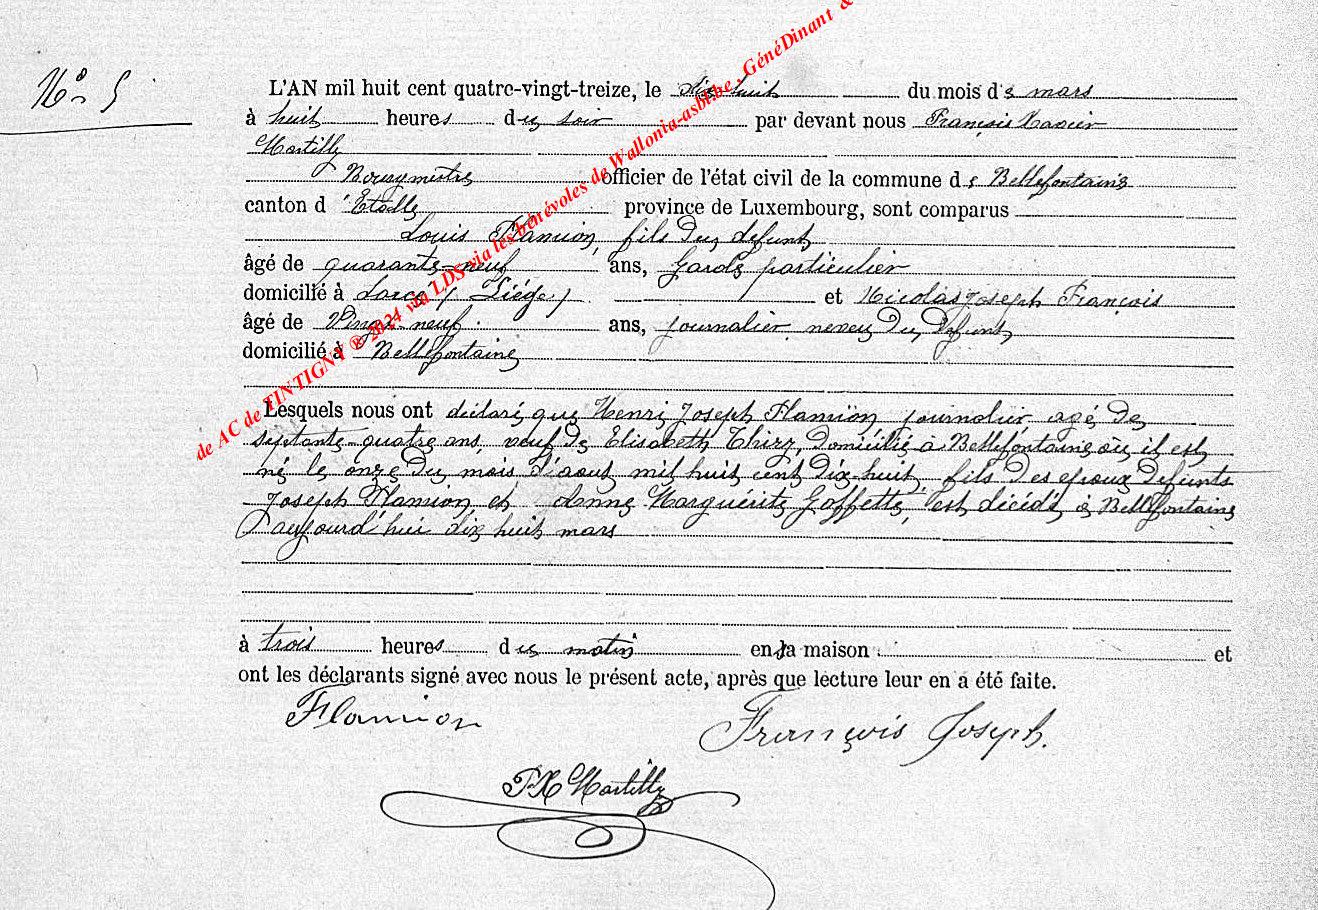 No 5
L'AN mil huit cent quatre-vingt-treize, le dix huit du mois de mars
à huit heures du soir par devant nous François Xavier
Martilly
Bourgmestre officier de l'état civil de la commune de Bellefontaine
canton d'Etalle province de Luxembourg, sont comparus
Louis Flamion, fils du defunt
âgé de quarante-neuf ans, Garde particulier
domicilié à (Liége) et Nicolas Joseph François
âgé de Vingt neuf ans, journalier neveu du defunt,
domicilié à Bellefontaine
Lesquels nous ont déclaré que Henri Joseph Flamion journalier, agé de
septante-quatre ans, veuf de Elisabeth Thiry, domicilié à Bellefontaine où il est
né le onze du mois d'aout mil huit cent dix-huit, fils des epoux defunts
Joseph Flamion et Anne Marguérite Goffette, est décédé à Bellefontaine
aujourd'hui dix huit mars
à trois heures du matin en sa maison et
ont les déclarants signé avec nous le présent acte, après que lecture leur en a été faite.
Flamion
François Joseph.
FX Martilly
de AC de TINTIGNY ® 2024 via LDS via les bénévoles de Wallonia-asbl.be, GénéDinant &